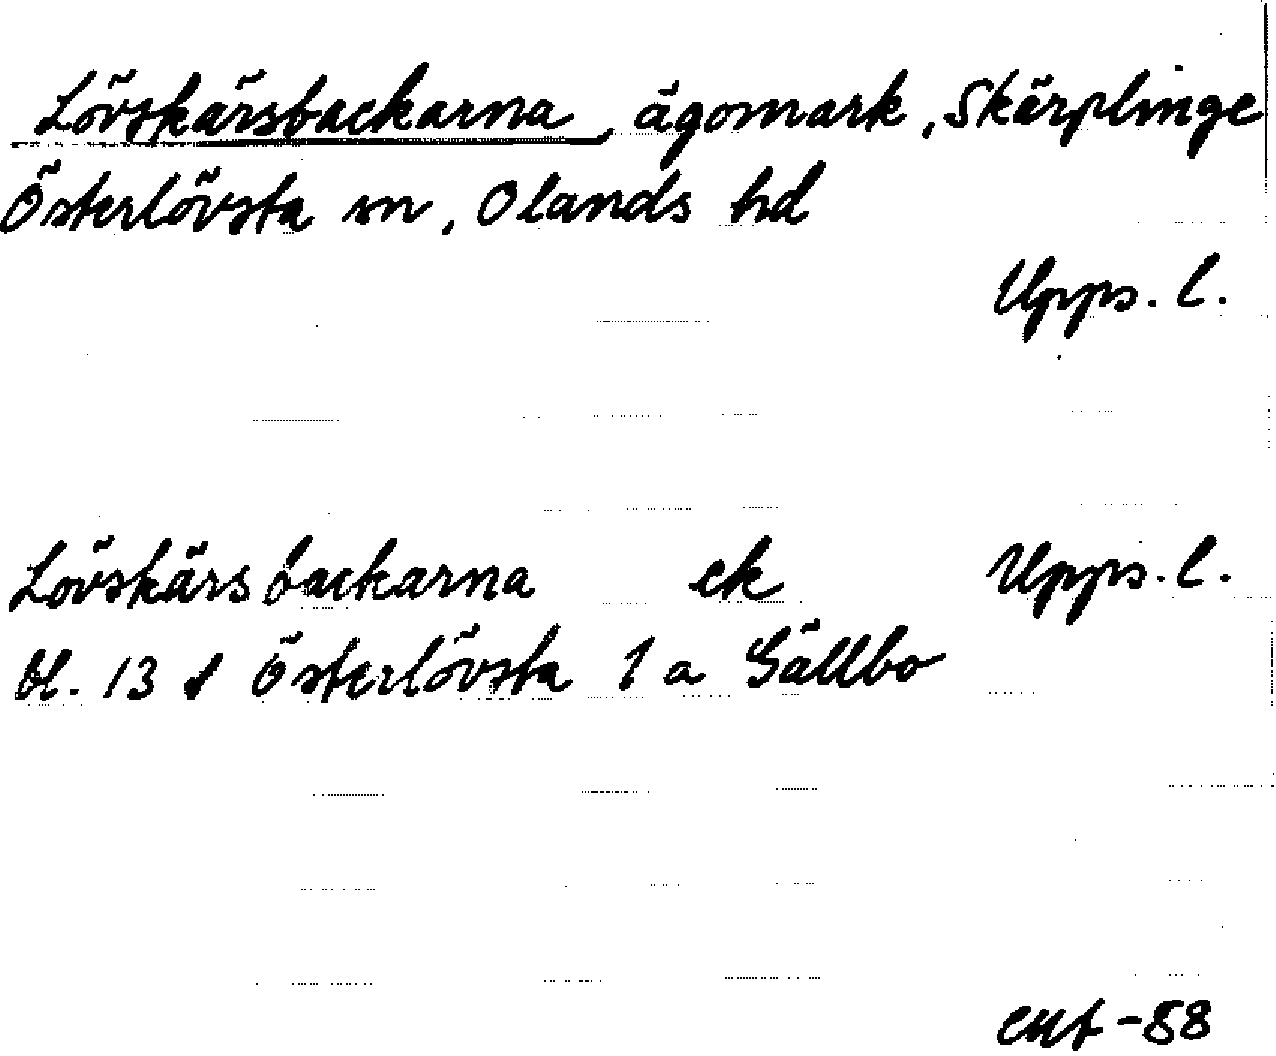 Lövskärsbackarna, ägomark, Skärplinge
Österlövsta sn, Olands hd
Upps. l.
Lövskärsbackarna ek Upps. l.
bl. 13 Österlövsta 1 a Sällbo
-88